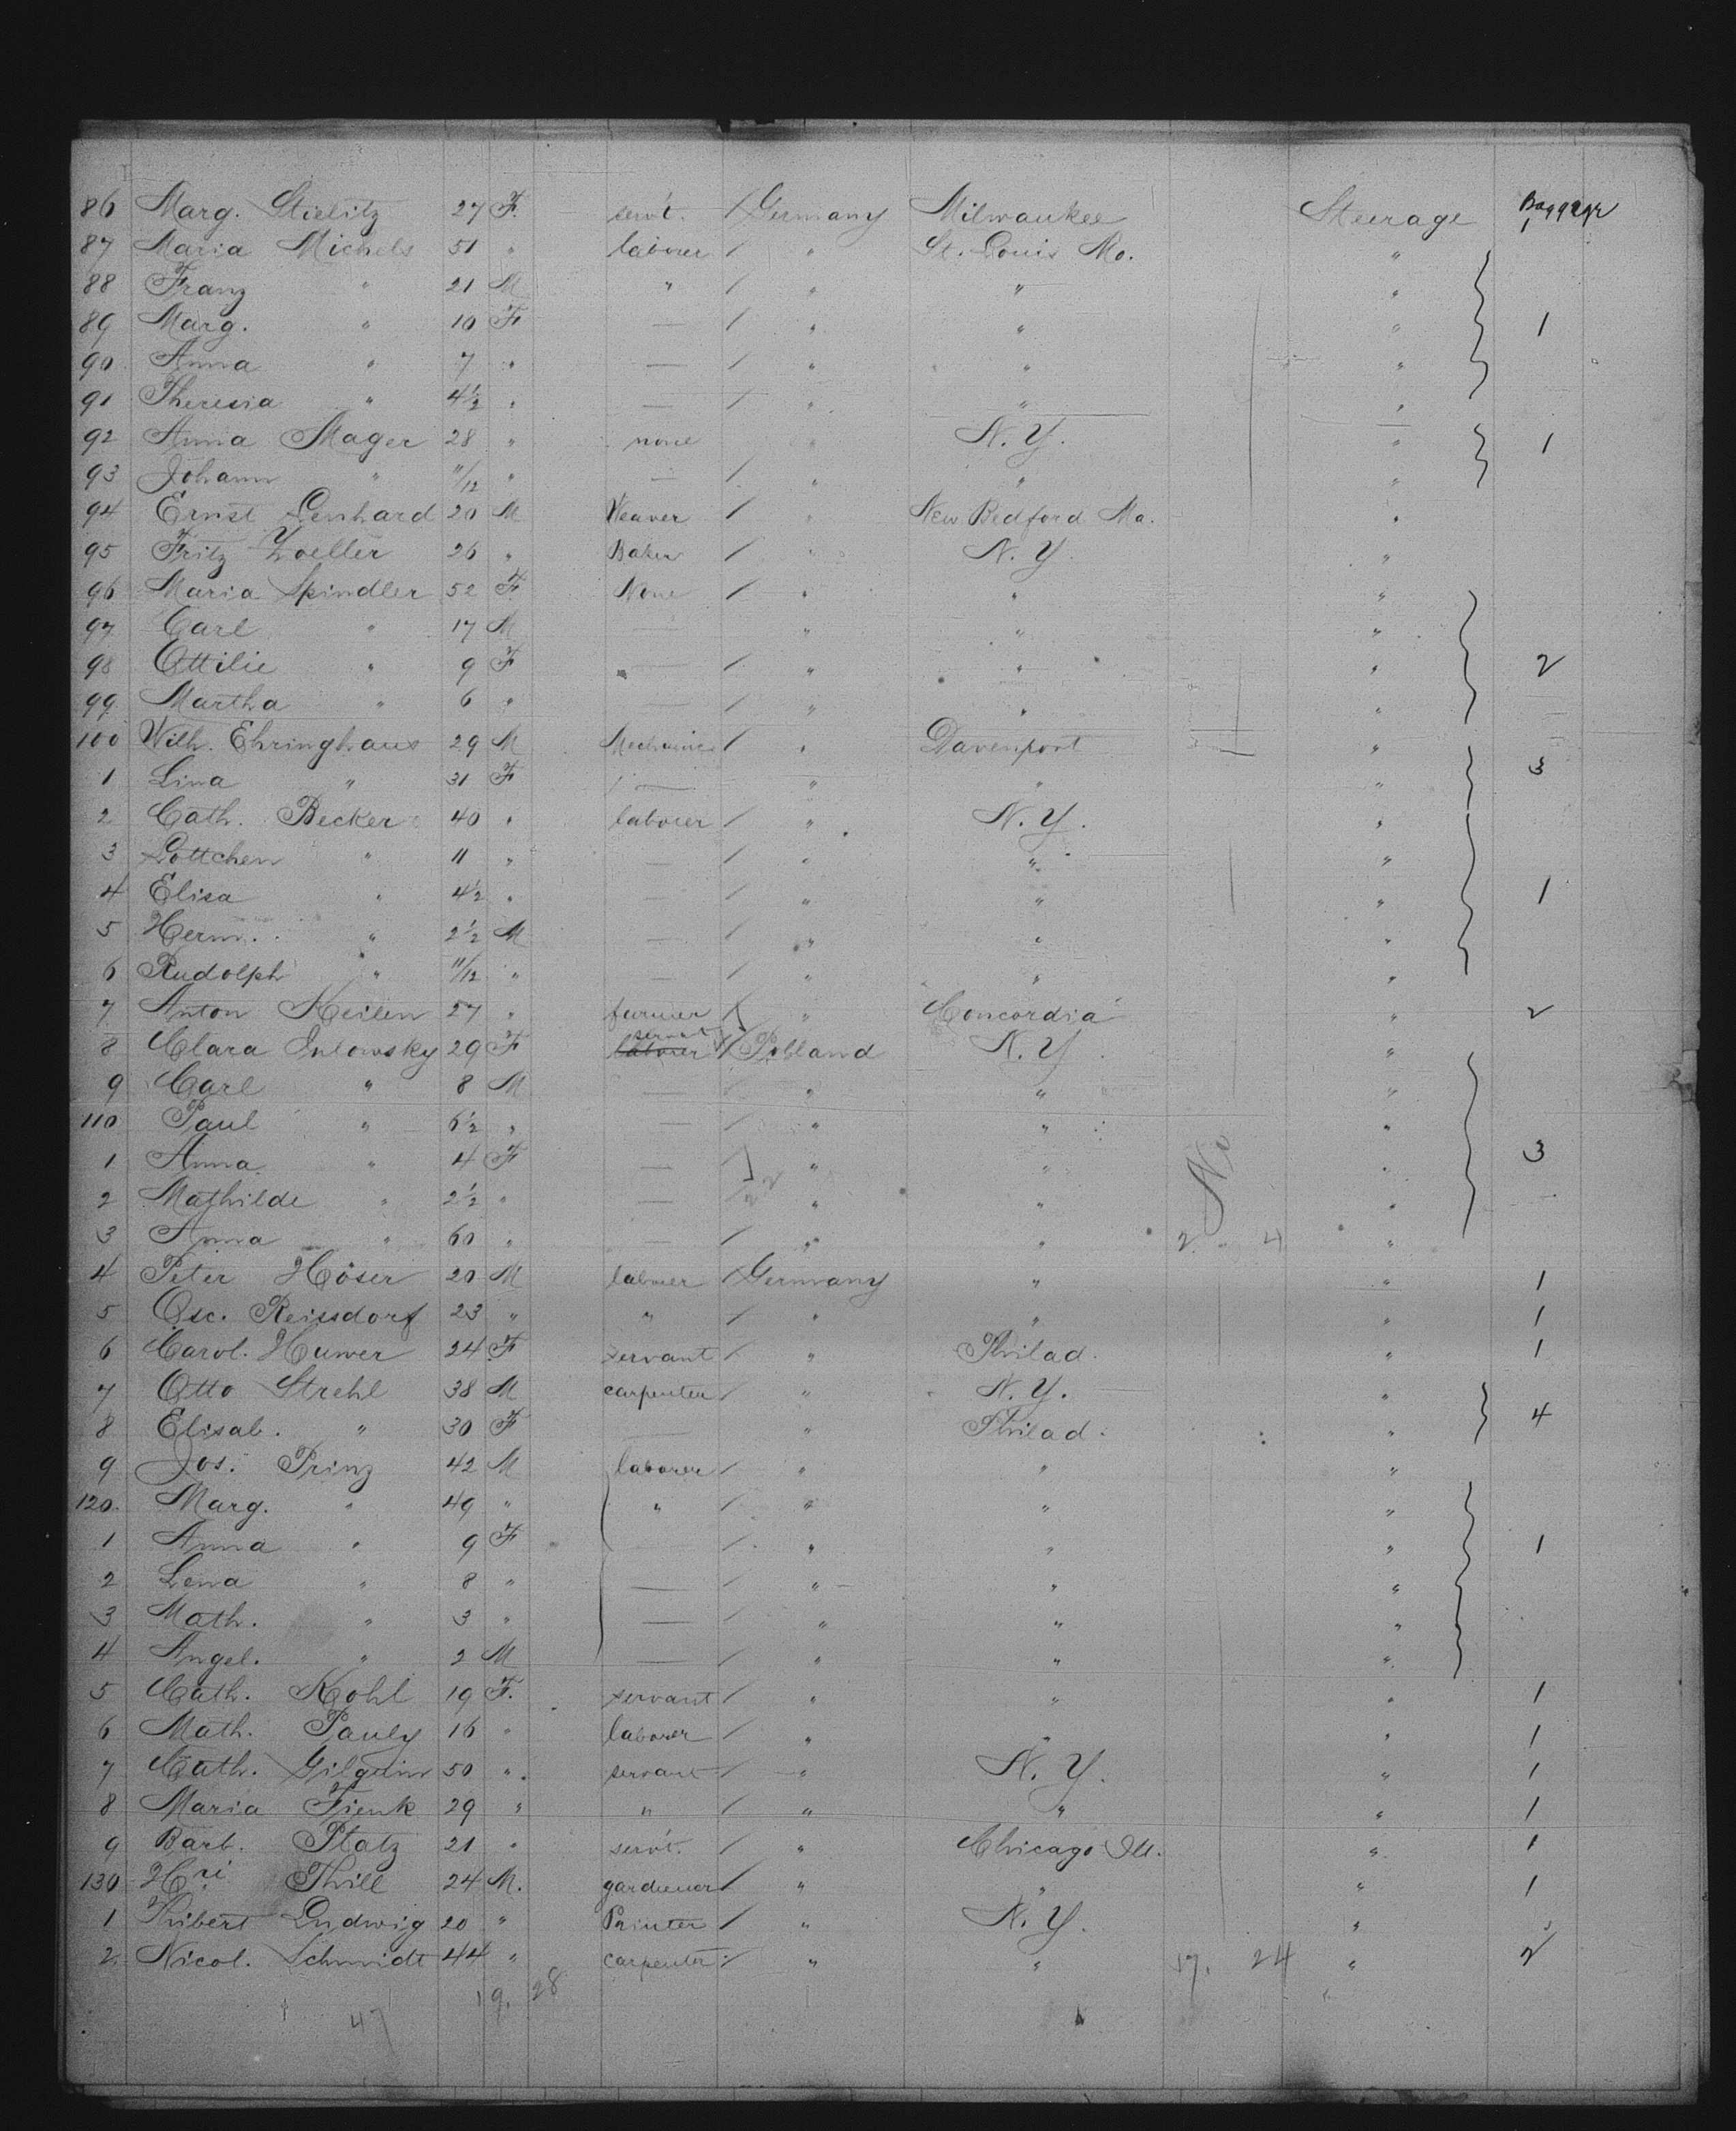 86 Marg. Stielitz 27 F. serv't. / Germany Milwaukee Steerage Baggage 1
87 Maria Michels 51 " laborer / " St. Louis Mo. "
88 Franz " 21 M " / " " "
89 Marg. " 10 F — / " " " 1
90 Anna " 7 " — / " " "
91 Theresia " 4½ " — / " " "
92 Anna Mager 28 " none " N. Y. " 1
93 Johann " 11/12 " — / " " "
94 Ernst Lenhard 20 M Weaver / " New Bedford Ma. "
95 Fritz Zoeller 26 " Baker / " N. Y. "
96 Maria Spindler 52 F. None / " " "
97 Carl " 17 M — " " "
98 Ottilie " 9 F — / " " " 2
99 Martha " 6 " — / " " "
100 Wilh. Ehringhaus 29 M Mechanic / " Davenport "
1 Lina " 31 F — " " " 3
2 Cath. Becker 40 " laborer / " N. Y. "
3 Lottchen " 11 " — / " " "
4 Elisa " 4½ " — / " " " 1
5 Herm. " 2½ M — / " " "
6 Rudolph " 11/12 " — / " " "
7 Anton Keilen 27 " farmer / " Concordia " 2
8 Clara 29 F laborer servant / Poland N. Y. "
9 Carl " 8 M — " " "
110 Paul " 6½ " — / " " "
1 Anna " 4 F — / " " " 3
2 Mathilde " 2½ " — / " " "
3 Anna " 60 " — / " " 2 - 4 "
4 Peter Höser 20 M laborer / Germany " " 1
5 Osc. Reissdorf 23 " " / " " " 1
6 Carol. Huwer 24 F servant / " Philad. " 1
7 Otto Strehl 38 M carpenter / " N. Y. "
8 Elisab. " 30 F — " Philad. " 4
9 Jos. Prinz 42 M laborer / " " "
120. Marg. " 49 " " / " " "
1 Anna " 9 F / " " " 1
2 Lena " 8 " — / " " "
3 Math. " 3 " — / " " "
4 Angel. " 2 M — / " " "
5 Cath. Kohl 19 F. servant / " " " 1
6 Math. Pauly 16 " laborer / " " " 1
7 Cath. 50 " servant / " N. Y. " 1
8 Maria Fienk 29 " " / " " " 1
9 Barb. Platz 21 " serv't. / " Chicago Ill. " 1
130 Hri Thill 24 M. gardener / " " " 1
1 Ludwig 20 " Printer / " N. Y. "
2 Nicol. Schmidt 44 " carpenter / " " 17. 24 " 2
47 19. 28